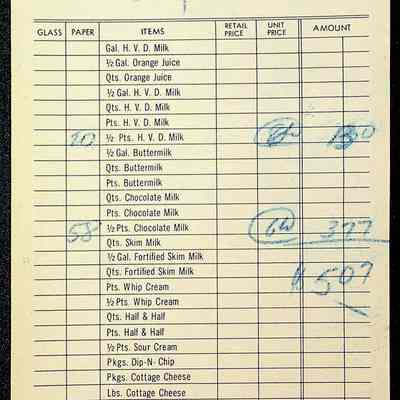 GLASS PAPER ITEMS RETAIL PRICE UNIT PRICE AMOUNT
Gal. H. V. D. Milk
½ Gal. Orange Juice
Qts. Orange Juice
½ Gal. H. V. D. Milk
Qts. H. V. D. Milk
Pts. H. V. D. Milk
20 ½ Pts. H. V. D. Milk 130
½ Gal. Buttermilk
Qts. Buttermilk
Pts. Buttermilk
Qts. Chocolate Milk
Pts. Chocolate Milk
58 ½ Pts. Chocolate Milk 377
Qts. Skim Milk
½ Gal. Fortified Skim Milk
Qts. Fortified Skim Milk
$ 507
Pts. Whip Cream
½ Pts. Whip Cream
Qts. Half & Half
Pts. Half & Half
½ Pts. Sour Cream
Pkgs. Dip-N- Chip
Pkgs. Cottage Cheese
Lbs. Cottage Cheese